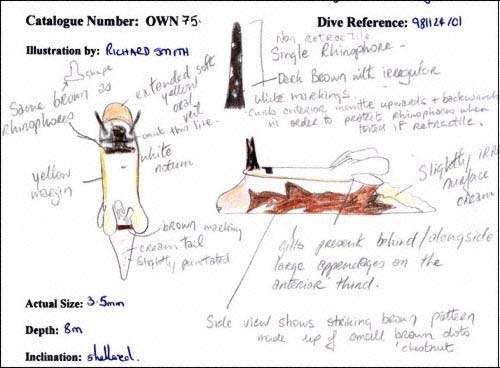 Catalogue Number: OWN 75.
Dive Reference: 981124/01
Illustration by: RICHARD SMITH
Non retractile
Single Rhinophore -
Dark Brown with irregular
white markings
Curls anterior mantle upwards + backwards
in order to protect Rhinophores when
if retractile.
shape
Same brown as
rhinophores
extended soft
yellow
oral
veil
omit this line.
white
notum
yellow
margin
brown marking
cream tail
slightly punctated
Slightly
surface
cream
Gills present behind/alongside
large appendages on the
anterior third.
Side view shows striking brown pattern
made up of small brown dots
'chestnut
Actual Size: 3.5mm
Depth: 8m
Inclination: sheltered.